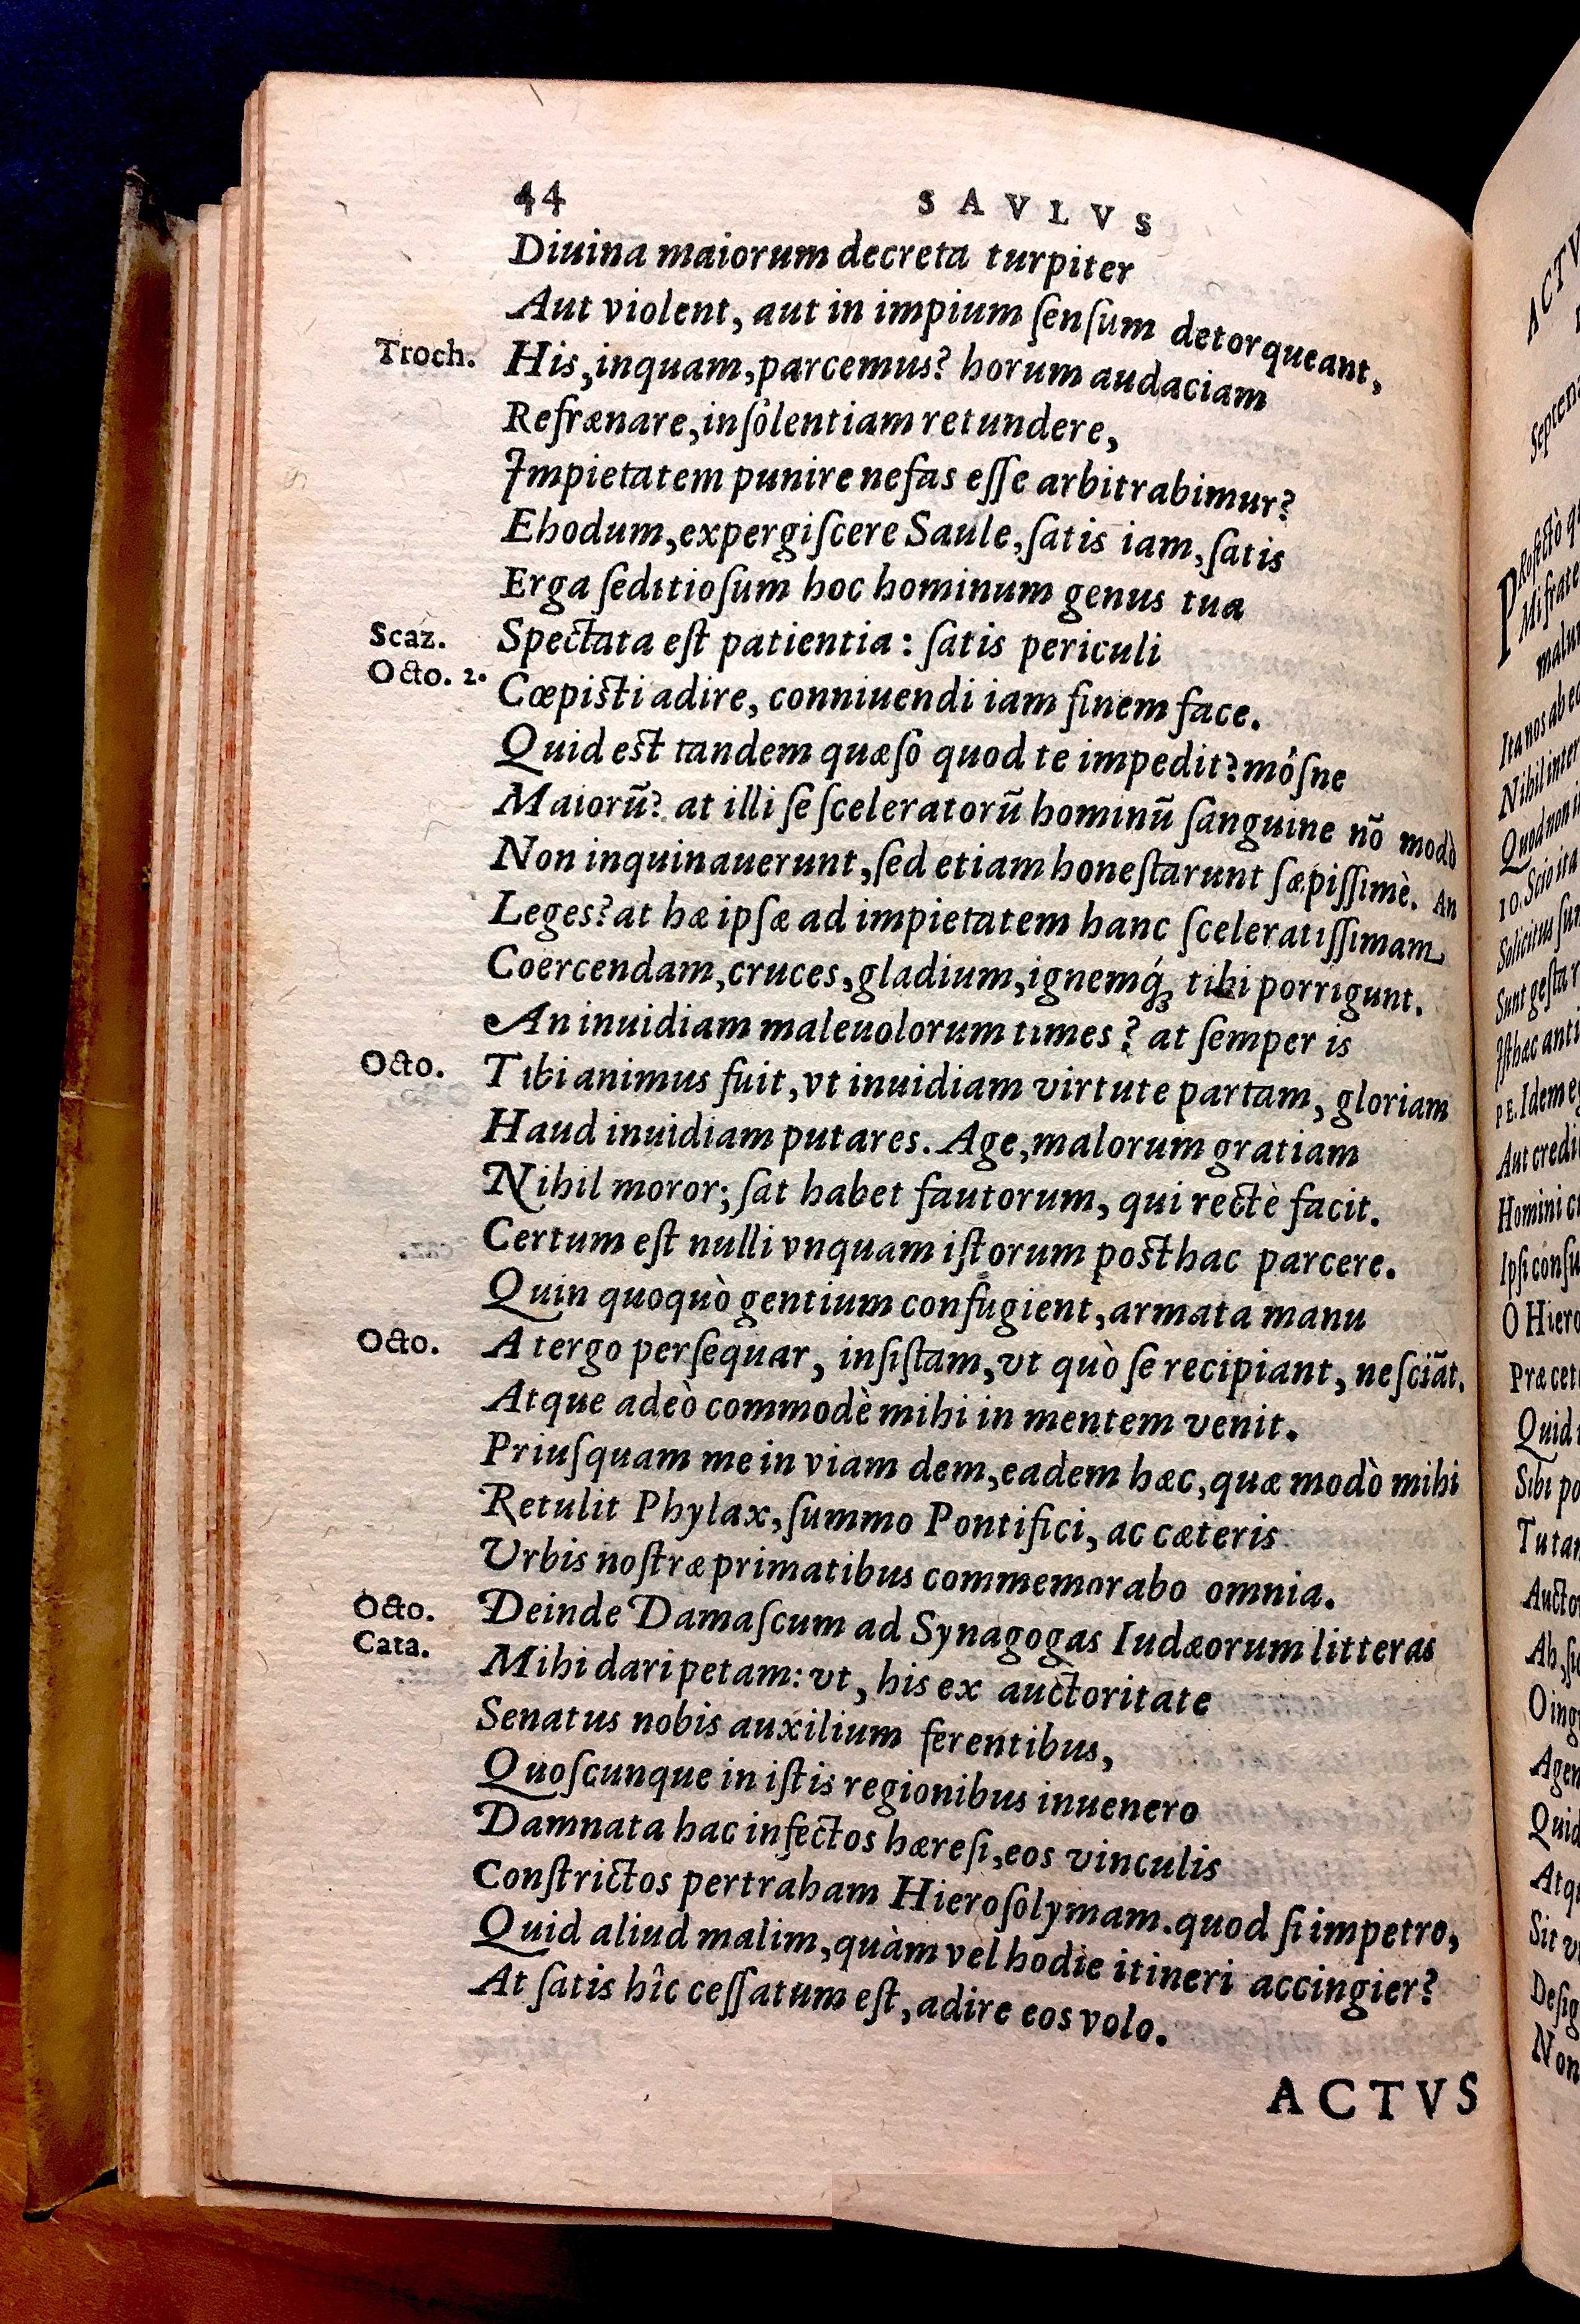 44 SAVLVS
Diuina maiorum decreta turpiter
Aut violent, aut in impium ſenſum detorqueant,
Troch. His, inquam, parcemus? horum audaciam
Refrænare, inſolentiam retundere,
Impietatem punire nefas eſſe arbitrabimur?
Ehodum, expergiſcere Saule, ſatis iam, ſatis
Erga ſeditioſum hoc hominum genus tua
Scaz. Spectata eſt patientia: ſatis periculi
Octo. 2. Cœpisti adire, conniuendi iam finem face.
Quid est tandem quæſo quod te impedit? mósne
Maiorū? at illi ſe ſceleratorū hominū ſanguine nō modò
Non inquinauerunt, ſed etiam honeſtarunt ſæpiſſimè. An
Leges? at hæ ipſæ ad impietatem hanc ſceleratiſſimam
Coercendam, cruces, gladium, ignemq́; tibi porrigunt.
An inuidiam maleuolorum times? at ſemper is
Octo. Tibi animus fuit, vt inuidiam virtute partam, gloriam
Haud inuidiam putares. Age, malorum gratiam
Nihil moror; ſat habet fautorum, qui rectè facit.
Certum eſt nulli vnquam iſtorum posthac parcere.
Quin quoquò gentium confugient, armata manu
Octo. A tergo perſequar, inſiſtam, vt quò ſe recipiant, neſciāt.
Atque adeò commodè mihi in mentem venit.
Priuſquam me in viam dem, eadem hæc, quæ modò mihi
Retulit Phylax, ſummo Pontifici, ac cæteris
Vrbis noſtræ primatibus commemorabo omnia.
Octo. Deinde Damaſcum ad Synagogas Iudæorum litteras
Cata. Mihi dari petam: vt, his ex auctoritate
Senatus nobis auxilium ferentibus,
Quoſcunque in iſtis regionibus inuenero
Damnata hac infectos hæreſi, eos vinculis
Conſtrictos pertraham Hieroſolymam. quod ſi impetro,
Quid aliud malim, quàm vel hodie itineri accingier?
At ſatis hîc ceſſatum eſt, adire eos volo.
ACTVS
PRofectò
Miſrate
Ita nos ab
Nihil inter
Quod non
10. Scio ita
Solicitus
Sunt geſta
Iſthæc anti
PE. Idem
Aut credi
Homini
Ipſi
O Hiero
Præ cet
Quid
Sibi
Agen
Quid
Sit
Non